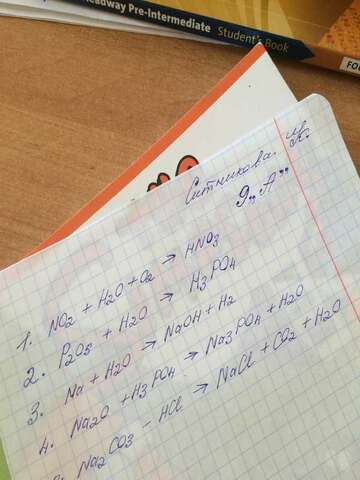 eadway Pre-Intermediate Student's Book
FO
Ситникова. М.
9 „А”
1. NO2 + H2O + O2 → HNO3
2. P2O5 + H2O → H3PO4
3. Na + H2O → NaOH + H2
4. Na2O + H3PO4 → Na3PO4 + H2O
Na2CO3 - HCl → NaCl + CO2 + H2O